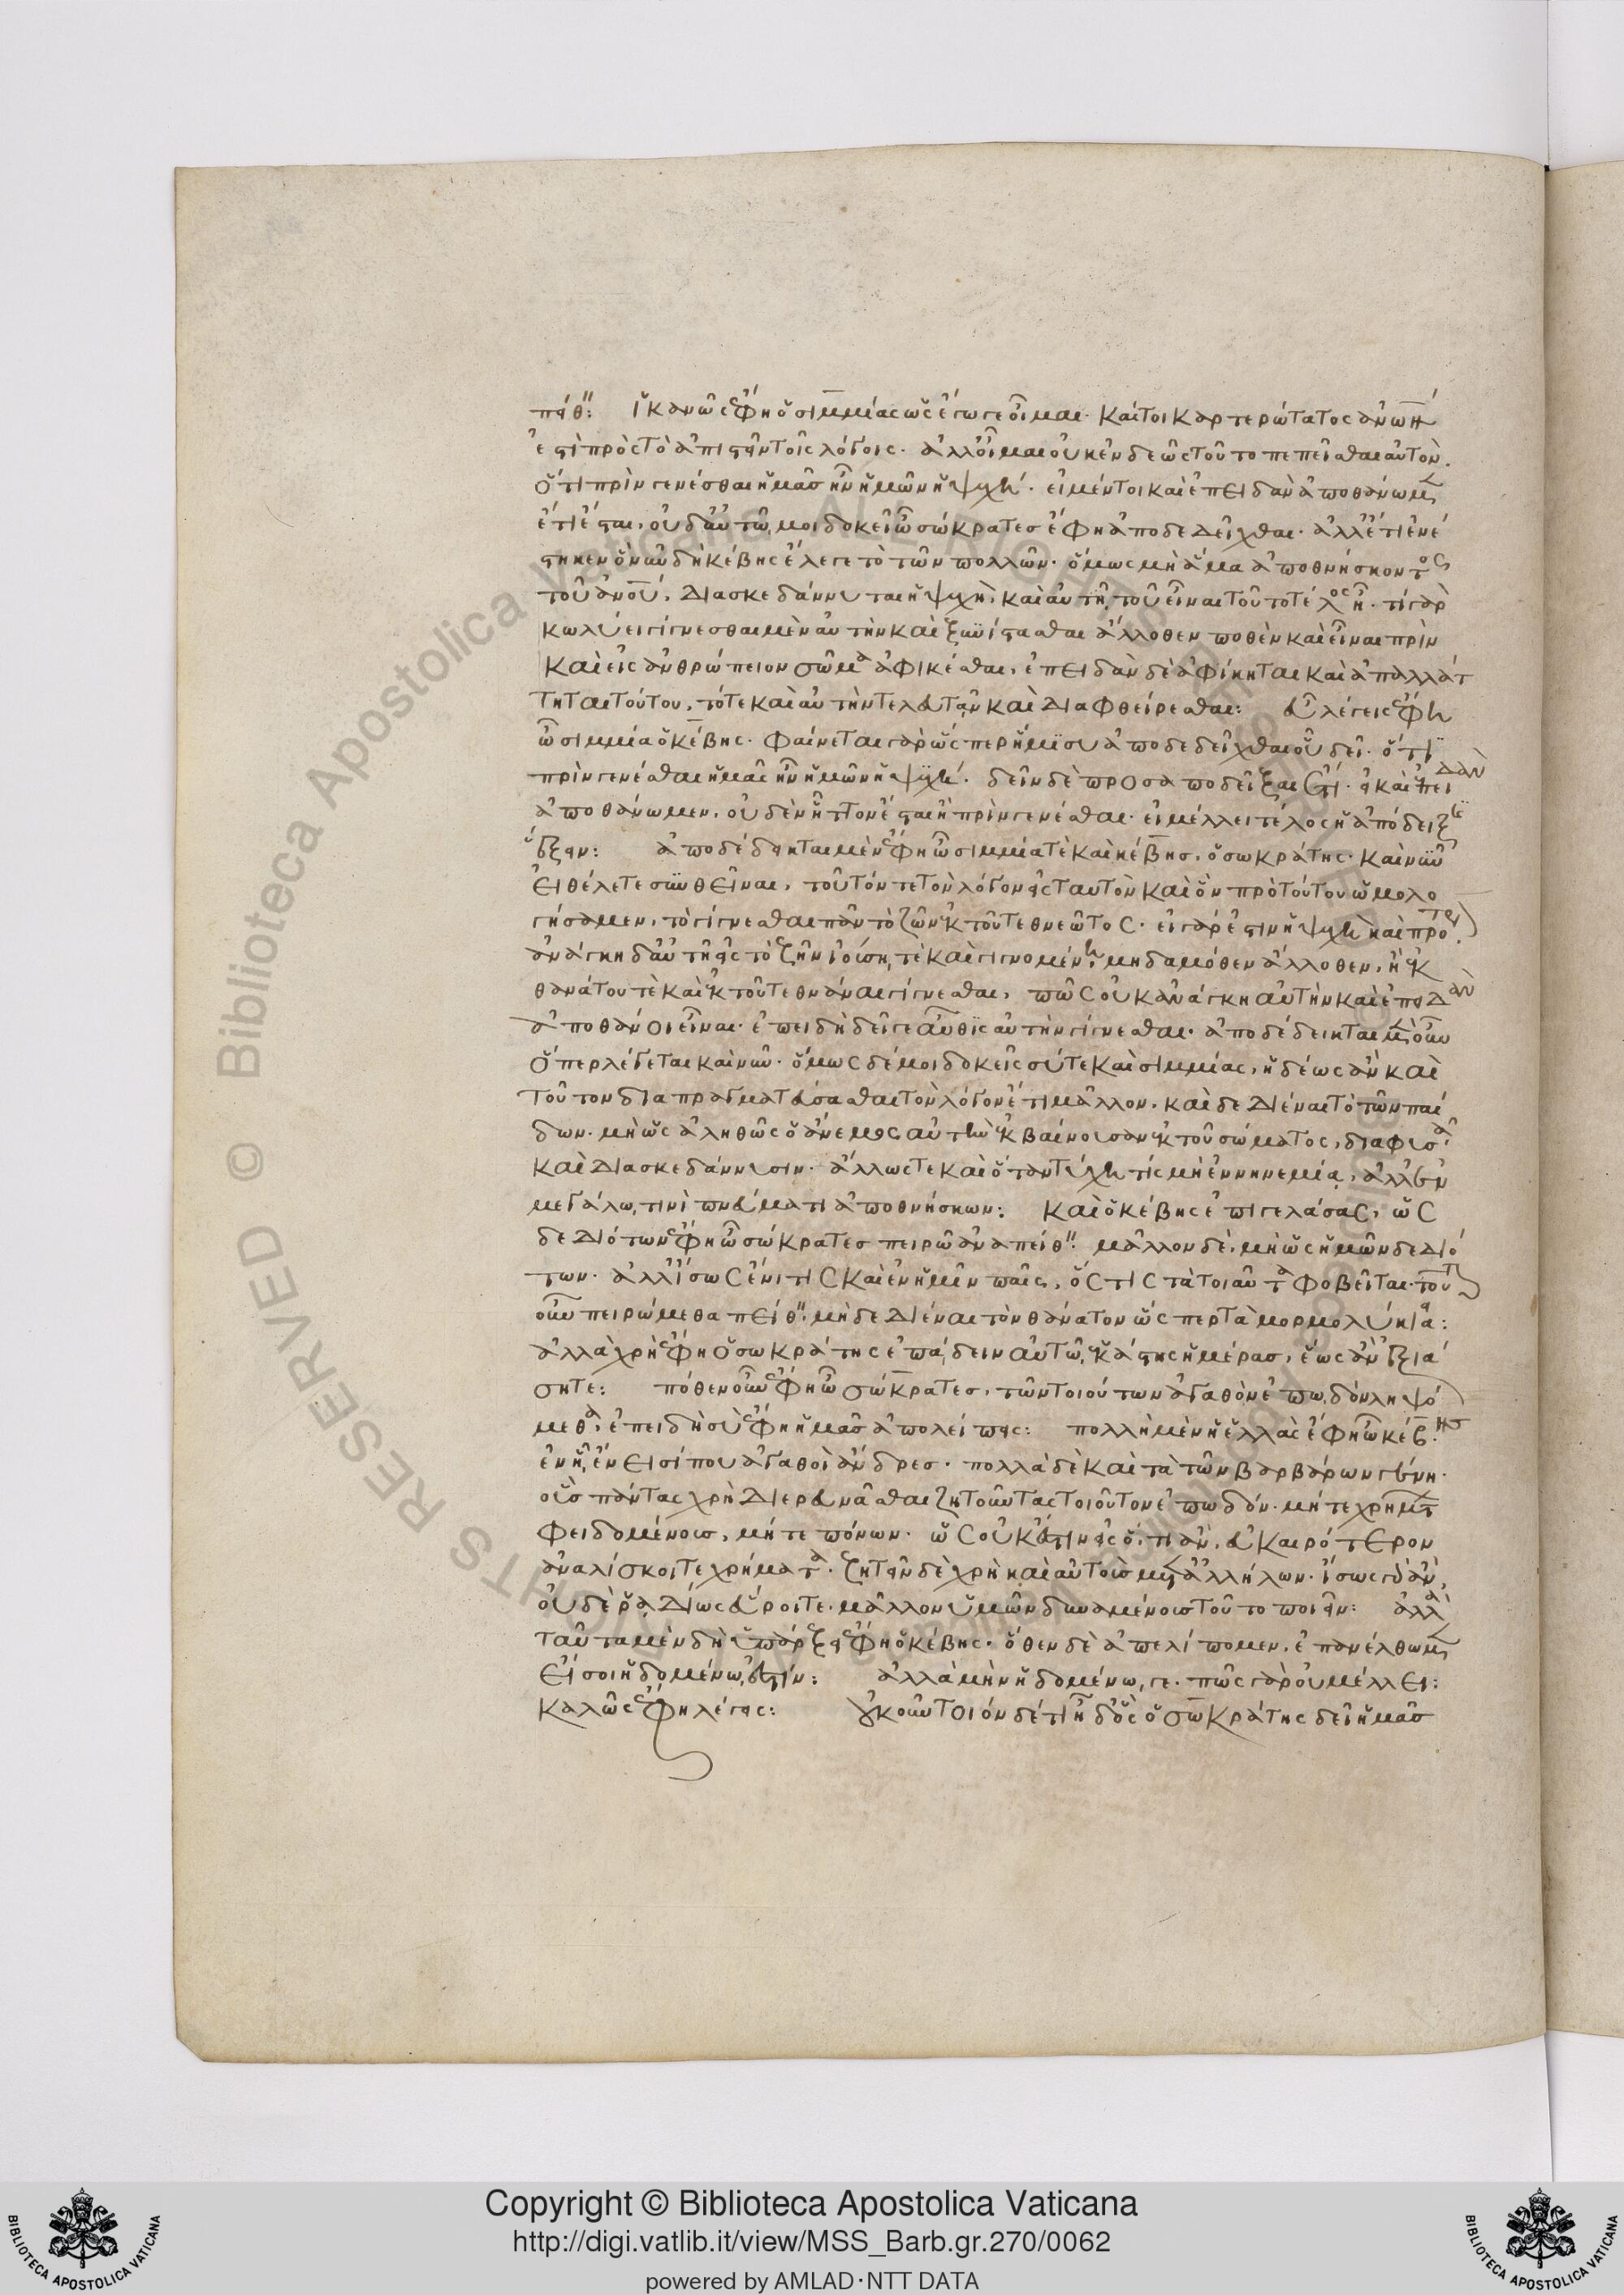 πείθειν: ἱκανῶς ἔφη ὁ σιμμίας ὡς ἔγωγε οἶμαι· καίτοι καρτερώτατος ἀνῶν
ἐστὶ πρὸς τὸ ἀπιστεῖν τοῖς λόγοις· ἀλλ' οἶμαι οὐκ ἐνδεῶς τοῦτο πεπεῖσθαι αὐτὸν.
ὅτι πρὶν γενέσθαι ἡμᾶσ ἦν ἡμῶν ἡ ψυχή· εἰ μέντοι καὶ ἐπειδὰν ἀποθάνωμεν
ἔτι ἔσται, οὐδ' αὐτῶ μοι δοκεῖ ὦ σώκρατεσ ἔφη ἀποδεδεῖχθαι· ἀλλ' ἔτι ἐνέ
στηκεν ὃ νῦν δὴ κέβης ἔλεγε τὸ τῶν πολλῶν· ὅμως μὴ ἅμα ἀποθνήσκοντος
τοῦ ἀνου, διασκεδάννυται ἡ ψυχὴ, καὶ αὐτῆ τοῦ εἶναι τοῦτο τέλος ἦ· τί γὰρ
κωλύει γίγνεσθαι μὲν αὐτὴν καὶ ξυνίστασθαι ἄλλοθεν ποθὲν καὶ εἶναι πρὶν
καὶ εἰς ἀνθρώπειον σῶμα ἀφικέσθαι, ἐπειδὰν δὲ ἀφίκηται καὶ ἀπαλλάτ
τηται τούτου, τότε καὶ αὐτὴν τελευτᾶν καὶ διαφθείρεσθαι: εὖ λέγεις ἔφη
ὦ σιμμία ὁ κέβης· φαίνεται γὰρ ὥσπερ ἥμισυ ἀποδεδεῖχθαι οὗ δεῖ· ὅτι
πρὶν γενέσθαι ἡμᾶς ἦν ἡμῶν ἡ ψυχή· δεῖν δὲ προσαποδεῖξαι ἔτι· εἰ καὶ ἐπειδὰν
ἀποθάνωμεν, οὐδὲν ἧττον ἔσται ἢ πρὶν γενέσθαι· εἰ μέλλει τέλος ἡ ἀπόδειξις
ἕξειν: ἀποδέδεικται μὲν ἔφη ὦ σιμμία τὲ καὶ κέβησ, ὁ σωκράτης· καὶ νῦν
εἰ θέλετε συνθεῖναι, τοῦτόν τε τὸν λόγον εἰς ταυτὸν καὶ ὃν πρὸ τούτου ὡμολο
γήσαμεν, τὸ γίγνεσθαι πᾶν τὸ ζῶν ἐκ τοῦ τεθνεῶτος· εἰ γάρ ἐστιν ἡ ψυχὴ καὶ πρότερ
ἀνάγκη δ' αὐτῆ εἰς τὸ ζῆν ἰούση τὲ καὶ γιγνομένη, μηδαμόθεν ἄλλοθεν, ἢ ἐκ
θανάτου τὲ καὶ ἐκ τοῦ τεθνάναι γίγνεσθαι, πῶς οὐκ ἀνάγκη αὐτὴν καὶ ἐπειδὰν
ἀποθάνοι εἶναι· ἐπειδὴ δεῖ γε αὖθις αὐτὴν γίγνεσθαι· ἀποδέδεικται μὲν οὖν
ὅπερ λέγεται καὶ νῦν· ὅμως δέ μοι δοκεῖς σύ τε καὶ σιμμίας, ἡδέως ἂν καὶ
τοῦτον διαπραγματεύσασθαι τὸν λόγον ἔτι μᾶλλον, καὶ δεδιέναι τὸ τῶν παί
δων· μὴ ὡς ἀληθῶς ὁ ἄνεμος αὐτὴν ἐκβαίνουσαν ἐκ τοῦ σώματος, διαφυσᾶ
καὶ διασκεδάννυσιν· ἄλλως τε καὶ ὅταν τύχη τίς μὴ ἐν νηνεμία, ἀλλ' ἐν
μεγάλω τινὶ πνεύματι ἀποθνήσκων: καὶ ὁ κέβης ἐπιγελάσας, ὡς
δεδιότων ἔφη ὦ σώκρατεσ πειρῶ ἀναπείθειν· μᾶλλον δὲ, μὴ ὡς ἡμῶν δεδιό
των· ἀλλ' ἴσως ἔνι τις καὶ ἐν ἡμῖν παῖς, ὅς τις τὰ τοιαῦτα φοβεῖται· τοῦτ
οὖν πειρώμεθα πείθειν, μὴ δεδιέναι τὸν θάνατον ὥσπερ τὰ μορμολύκια:
ἀλλὰ χρὴ ἔφη ὁ σωκράτης ἐπάδειν αὐτῶ ἑκάστης ἡμέρασ, ἕως ἂν ἐξιά
σητε: πόθεν οὖν ἔφη ὦ σώκρατεσ, τῶν τοιούτων ἀγαθὸν ἐπωδὸν ληψό
μεθα, ἐπειδὴ σὺ ἔφη ἡμᾶσ ἀπολείπεις: πολλὴ μὲν ἡ ἑλλὰς ἔφη ὦ κέβησ
ἐν ἧ ἔνεισί που ἀγαθοὶ ἄνδρεσ· πολλὰ δὲ καὶ τὰ τῶν βαρβάρων γένη·
οὓσ πάντας χρὴ διερευνᾶσθαι ζητοῦντας τοιοῦτον ἐπωδόν· μήτε χρημάτων
φειδομένουσ, μήτε πόνων· ὡς οὐκ ἔστιν εἰς ὅ, τι ἂν εὐκαιρότερον
ἀναλίσκοιτε χρήματα· ζητεῖν δὲ χρὴ καὶ αὐτοὺσ μετ' ἀλλήλων· ἴσως γὰρ ἂν
οὐδὲ ῥαδίως εὕροιτε μᾶλλον ὑμῶν δυναμένουσ τοῦτο ποιεῖν: ἀλλὰ
ταῦτα μὲν δὴ ὑπάρξει ἔφη ὁ κέβης· ὅθεν δὲ ἀπελίπομεν, ἐπανέλθωμεν
εἴ σοι ἡδομένω ἐστίν: ἀλλὰ μὴν ἡδομένω γε· πῶς γὰρ οὐ μέλλει:
καλῶς ἔφη λέγεις: οὐκοῦν τοιόνδέ τι ἦ δ' ὃς ὁ σωκράτης δεῖ ἡμᾶσ
Copyright © Biblioteca Apostolica Vaticana
http://digi.vatlib.it/view/MSS_Barb.gr.270/0062
powered by AMLAD·NTT DATA